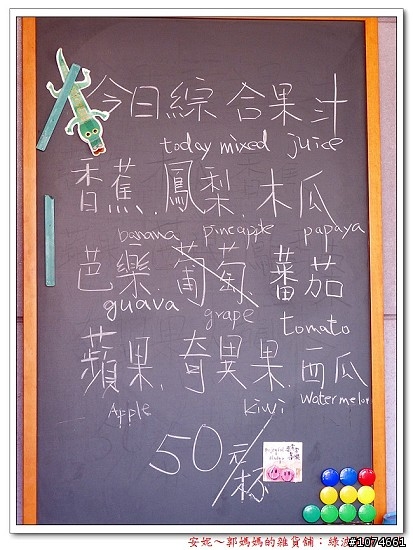 今日綜合果汁
today mixed juice
香蕉.鳳梨.木瓜
banana pineapple papaya
芭樂.葡萄 蕃茄
guava grape tomato
蘋果.奇異果.西瓜
Apple kiwi Watermelon
50元/杯
安妮～郭媽媽的雜貨舖：綠波
#1074661